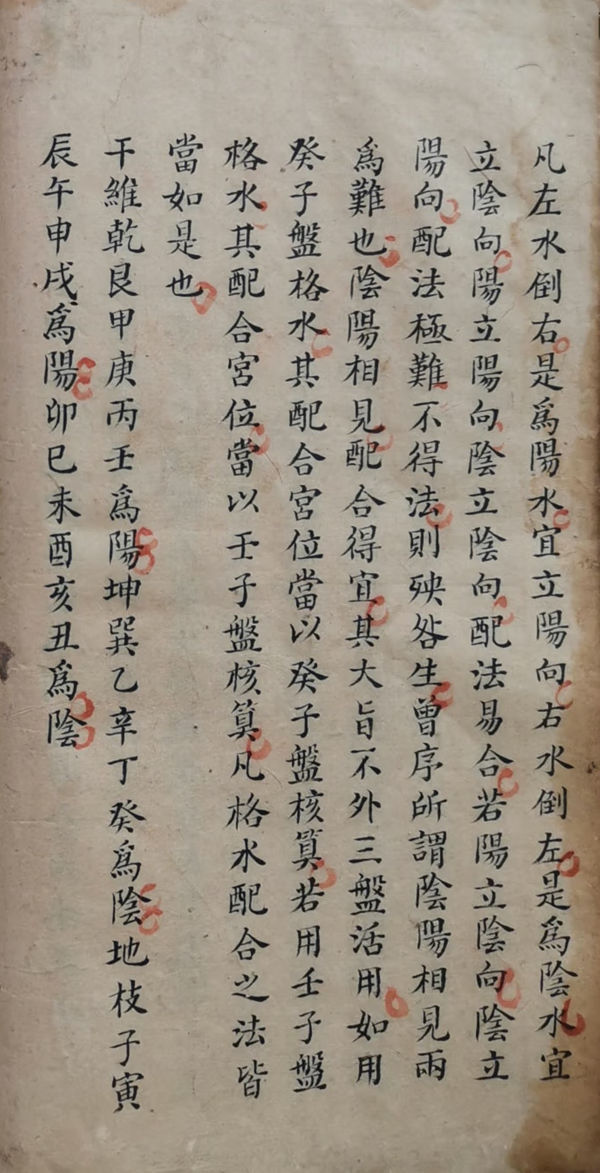 凡左水倒右是爲陽水宜立陽向右水倒左是爲陰水宜
立陰向陽立陽向陰立陰向配法易合若陽立陰向陰立
陽向配法極難不得法則殃咎生曾序所謂陰陽相見兩
爲難也陰陽相見配合得宜其大旨不外三盤活用如用
癸子盤格水其配合宮位當以癸子盤核算若用壬子盤
格水其配合宮位當以壬子盤核算凡格水配合之法皆
當如是也
干維乾艮甲庚丙壬爲陽坤巽乙辛丁癸爲陰地枝子寅
辰午申戌爲陽卯巳未酉亥丑爲陰